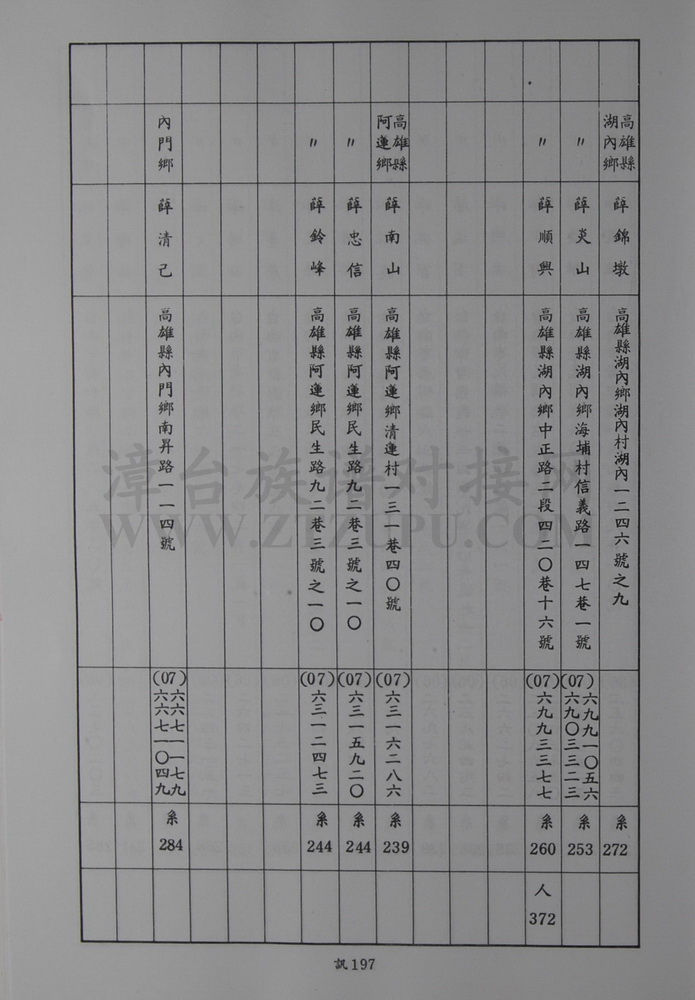 高雄縣
湖內鄉
薛錦墩
高雄縣湖內鄉湖內村湖內一二四六號之九
系
272
〃
薛炎山
高雄縣湖內鄉海埔村信義路一四七巷一號
(07)
六九九一〇五六
六九〇三三二三
系
253
〃
薛順興
高雄縣湖內鄉中正路二段四二〇巷十六號
(07)
六九九三三七七
系
260
人
372
高雄縣
阿蓮鄉
薛南山
高雄縣阿蓮鄉清蓮村一三一巷四〇號
(07)
六三一六二八六
系
239
〃
薛忠信
高雄縣阿蓮鄉民生路九二巷三號之一〇
(07)
六三一五九二〇
系
244
〃
薛鈴峰
高雄縣阿蓮鄉民生路九二巷三號之一〇
(07)
六三一二四七三
系
244
內門鄉
薛清己
高雄縣內門鄉南昇路一一四號
(07)
六六七一一七九
六六七一〇四九
系
284
訊197
漳台族谱对接网
WWW.ZTZUPU.COM